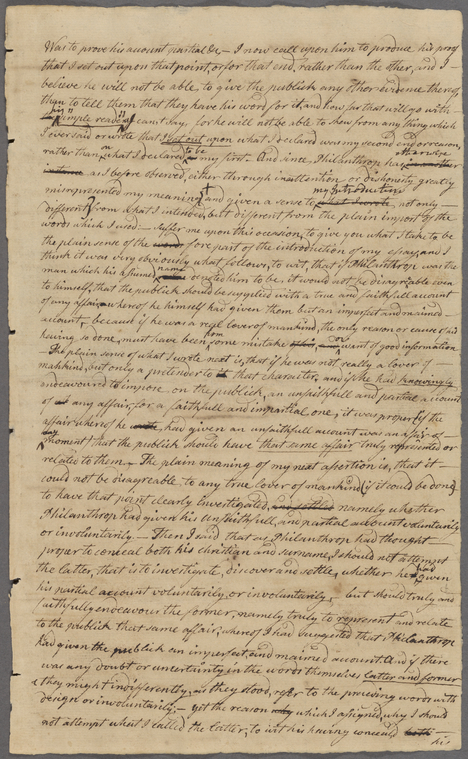 Was to prove his account partial &c — I now call upon him to produce his proof
that I set out upon that point, or for that end, rather than the other, and I
believe he will not be able, to give the publick any other evidence thereof,
than to tell them that they have his word for it and how far that will go with
his readers I cant say. for he will not be able to shew from any thing which
I ever said or wrote that I set out upon what I declared was my second end or reason,
rather than, on what I declared to be my first. And since, Philanthrop has
as I before observed, either through inattention or dishonesty greatly
misrepresented my meaning and given a sense to my introduction not only
different from what I intended, but different from the plain import of the
words which I used — Suffer me upon this occasion, to give you what I take to be
the plain sense of the fore part of the introduction of my essay, and I
think it was very obviously what follows, to wit, that if Philanthrop was the
man which his assumed name denoted him to be, it would not be disagreable even
to himself, that the publick should be supplyed with a true and faithfull account
of any affair whereof he himself had given them but an imperfect and maimed
account, because if he was a real lover of mankind, the only reason or cause of his
having so done, must have been from some mistake or want of good information
The plain sense of what I wrote next is, that if he was not really a lover of
mankind, but only a pretender to that character, and if he had knowingly
endeavoured to impose on the publick, an unfaithfull and partial account
of any affair, for a faithfull and impartial one, it was proper if the
affair whereof he had given an unfaithfull account was an affair of
moment that the publick should have that same affair truly represented or
related to them. The plain meaning of my next assertion is, that it
could not be disagreable to any true lover of mankind (if it could be done)
to have that point clearly investigated, namely whether
Philanthrop had given his unfaithfull, and partial account voluntarily
or involuntarily. — Then I said that as Philanthrop had thought
proper to conceal both his christian and surname, I should not attempt
the latter, that is to investigate, discover and settle, whether he had given
his partial account voluntarily, or involuntarily, but should truly and
faithfully endeavour the former, namely truly to represent and relate
to the publick that same affair, whereof I had suggested that Philanthrop
had given the publick an imperfect and maimed account. And if there
was any doubt or uncertainty in the words themselves latter and former
& they might indifferently as they stood, refer to the preceeding words with
design or involuntarily; — yet the reason which I assigned, why I should
not attempt what I called the latter, to wit his having conceald both
his